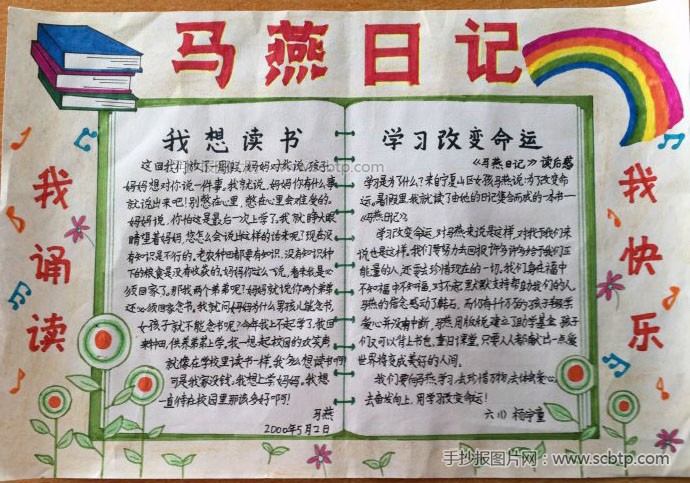 马燕日记
我诵读
我想读书
这回我们放了一周假,妈妈对我说:孩子,
妈妈想对你说一件事。我就说,妈妈你有什么事
就说出来吧!别憋在心里,憋在心里会难受的。
妈妈说,你怕这是最后一次上学了。我就睁大眼
睛望着妈妈,您怎么会说出这样的话来呢?现在没
有知识是不行的。老农种田都要有知识,没有知识种
下的粮食是没有收获的。妈妈你这么说,看来我是必
须回家了。那我两个弟弟呢?妈妈就说你两个弟弟
还必须回家念书。我就问妈妈为什么男孩儿能念书,
女孩子就不能念书呢?今年我上不起学了,我回
来种田,供养弟弟上学,我一想起校园的欢笑声,
就像在学校里读书一样。我多么想读书啊!
可是我家没钱。我想上学妈妈,我想
一直待在校园里那该多好啊!
马燕
2000年5月2日
学习改变命运
《马燕日记》读后感
学习是为什么?来自宁夏山区女孩马燕说:为了改变命
运。暑假里我就读了由她的日记集合而成的一本书—
《马燕日记》。
学习改变命运,对马燕来说是这样,对我们来
说也是这样。我们要努力去回报许多许多给于我们正
能量的人,还要去珍惜现在的一切。我们身在福中
不知福,对不起默默支持帮助我们的人。
马燕的信念感动了韩石,
爱心并没有中断,马燕用版税建立了助学基金,孩子
们又可以背上书包,重归课堂。只要人人都献出一点爱
世界将变成美好的人间。
我们要向马燕学习,去珍惜万物,去体会爱心,
去奋发向上,用学习改变命运!
六(1)
我快乐
手抄报图片网:www.scbtp.com